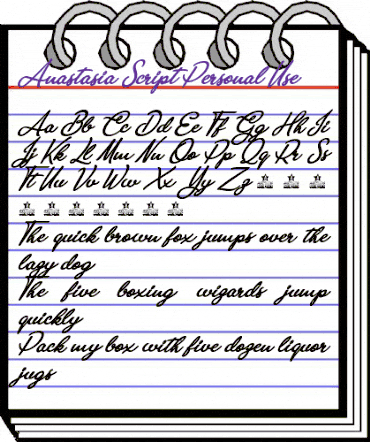 Anastasia Script Personal Use
Aa Bb Cc Dd Ee Ff Gg Hh Ii
Jj Kk Ll Mm Nn Oo Pp Qq Rr Ss
Tt Uu Vv Ww Xx Yy Zz
The quick brown fox jumps over the
lazy dog
The five boxing wizards jump
quickly
Pack my box with five dozen liquor
jugs